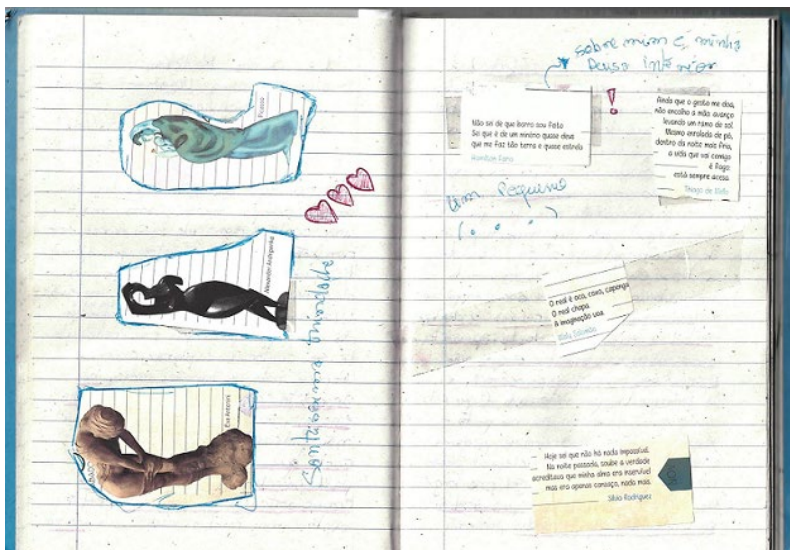 Picasso
Alexander Archipenko
sobre mim e minha
Não sei de que barro sou feito
Sei que é de um minério quase deus
que me faz tão terra e quase estrela
Hamilton Faria
!
Ainda que o gesto me doa,
não encolho a mão: avanço
levando um ramo de sol.
Mesmo enrolada de pó,
dentro da noite mais fria,
a vida que vai comigo
é fogo:
está sempre acesa.
Thiago de Mello
Um pequeno
(. . . )
O real é oco, coxo, capenga
O real chapa.
A imaginação voa.
Waly Salomão
Hoje sei que não há nada impossível.
Na noite passada, soube a verdade
acreditava que minha alma era inservível
mas era apenas cansaço, nada mais.
Silvio Rodríguez